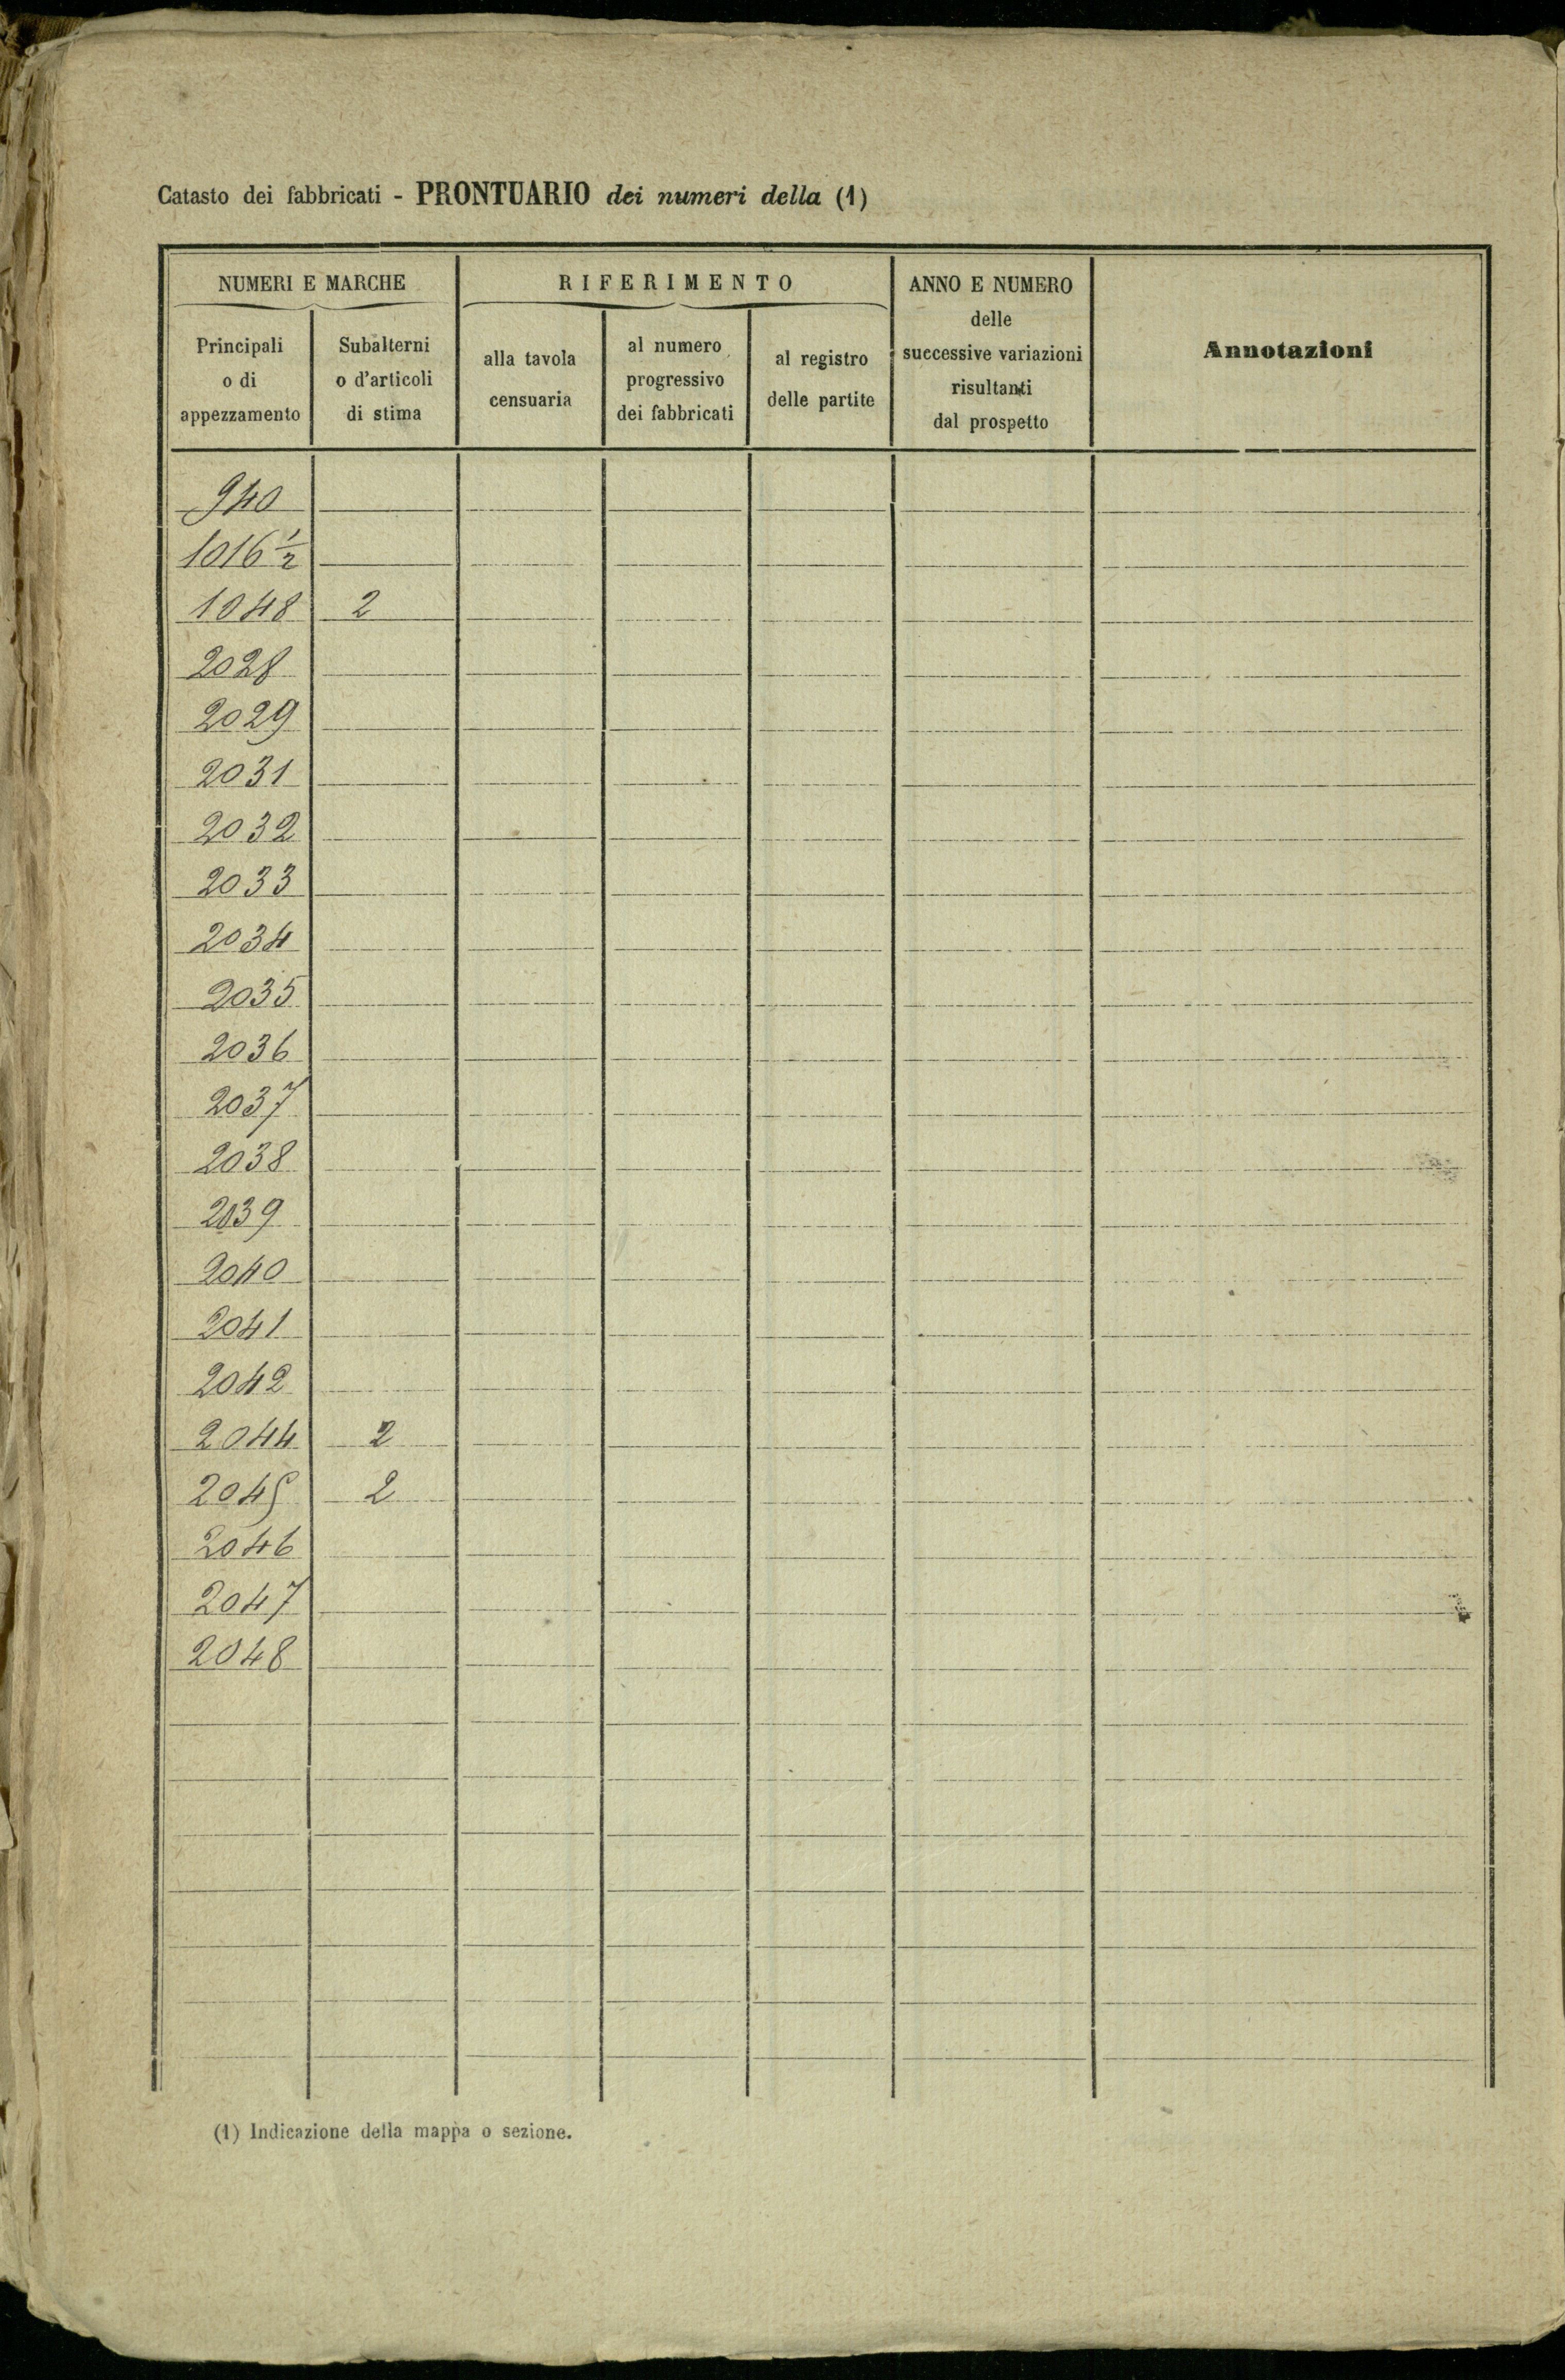 Catasto dei fabbricati - PRONTUARIO dei numeri della (1)
NUMERI E MARCHE
Principali
o di
appezzamento
Subalterni
o d'articoli
di stima
RIFERIMENTO
alla tavola
censuaria
al numero
progressivo
dei fabbricati
al registro
delle partite
ANNO E NUMERO
delle
successive variazioni
risultanti
dal prospetto
Annotazioni
940
1016 1/2
1048 2
2028
2029
2031
2032
2033
2034
2035
2036
2037
2038
2039
2040
2041
2042
2044 2
2045 2
2046
2047
2048
(1) Indicazione della mappa o sezione.